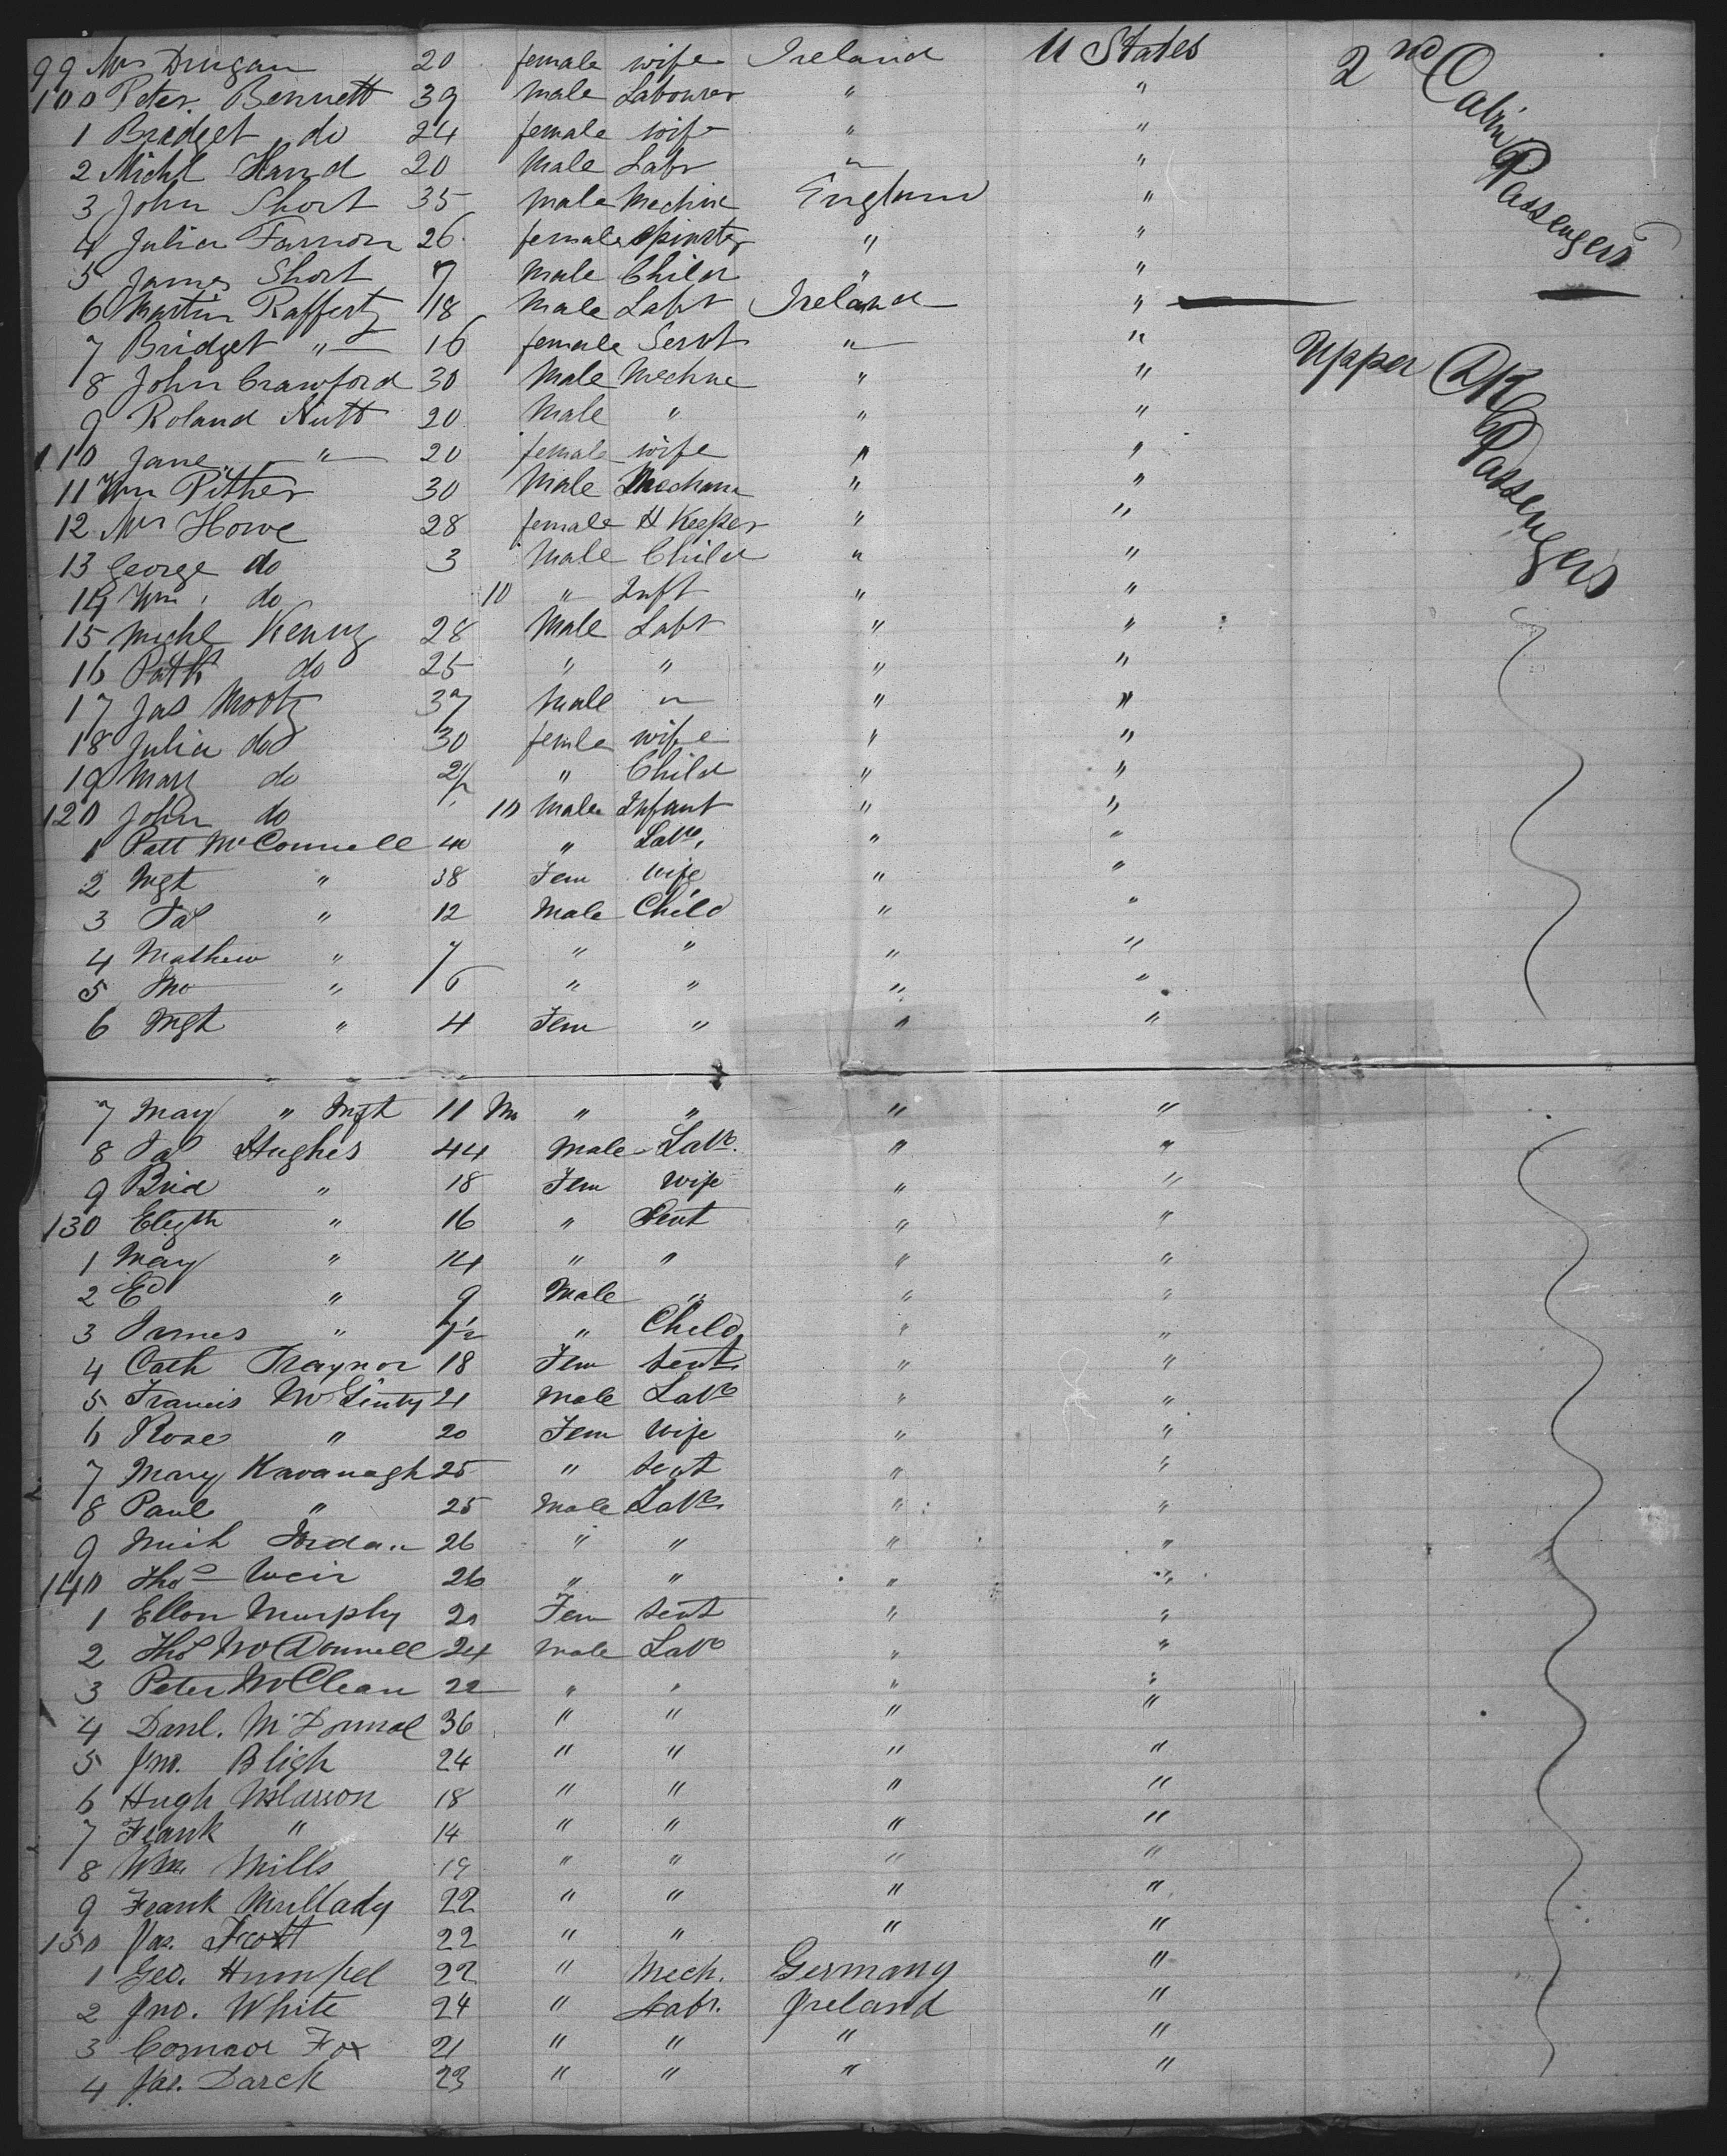 99 Mrs Drugan 20 female wife Ireland U States 2nd Cabin Passengers
100 Peter Bennett 39 Male Labourer " "
1 Bridget do 24 female wife " "
2 Michl Hand 20 Male Labr " "
3 John Short 35 Male Mechnc England "
4 Julia Farnon 26 female Spinster " "
5 James Short 7 Male Child " "
6 Martin Rafferty 18 Male Labr Ireland "
7 Bridget " 16 female Servt " " Upper Dk Passengers
8 John Crawford 30 Male Mechnc " "
9 Roland Nutt 20 Male " " "
110 Jane " 20 female wife " "
11 Wm Pither 30 Male Mechanc " "
12 Mrs Howe 28 female H Keeper " "
13 George do 3 Male Child " "
14 Wm do 10 " Inft " "
15 Michl Kenny 28 Male Labr " "
16 Patk do 25 " " " "
17 Jas 37 Male " " "
18 Julia do 30 femle wife " "
19 Mary do 2 1/2 " Child " "
120 John do 10 Male Infant " "
1 Patt McConnell 40 " Labr " "
2 Mgt " 38 Fem wife " "
3 Jas " 12 Male Child " "
4 Mathew " 7 " " " "
5 Jno " 6 " " " "
6 Mgt " 4 Fem " " "
7 Mary " Mgt 11 Mo " " " "
8 Jas Hughes 44 Male Labr " "
9 Brid " 18 Fem Wife " "
130 Elizth " 16 " Sevt " "
1 Mary " 14 " " " "
2 Ed " 9 Male " " "
3 James " 7 1/2 " Child " "
4 Cath Traynor 18 Fem Sevt " "
5 Francis McGinty 21 Male Labr " "
6 Rose " 20 Fem Wife " "
7 Mary Kavanagh 25 " Sevt " "
8 Paul " 25 Male Labr " "
9 Mich Jordan 26 " " " "
140 Thos Weir 26 " " " "
1 Ellen Murphy 20 Fem Sevt " "
2 Thos McDonnell 24 Male Labr " "
3 Peter McClean 22 " " " "
4 Danl. McDonnal 36 " " " "
5 Jno. Bligh 24 " " " "
6 Hugh 18 " " " "
7 Frank " 14 " " " "
8 Wm. Mills 19 " " " "
9 Frank Mullady 22 " " " "
150 Jas. Scott 22 " " " "
1 Geo. Humpel 22 " Mech. Germany "
2 Jno. White 24 " Labr. Ireland "
3 Connor Fox 21 " " " "
4 Jas. Darck 23 " " " "